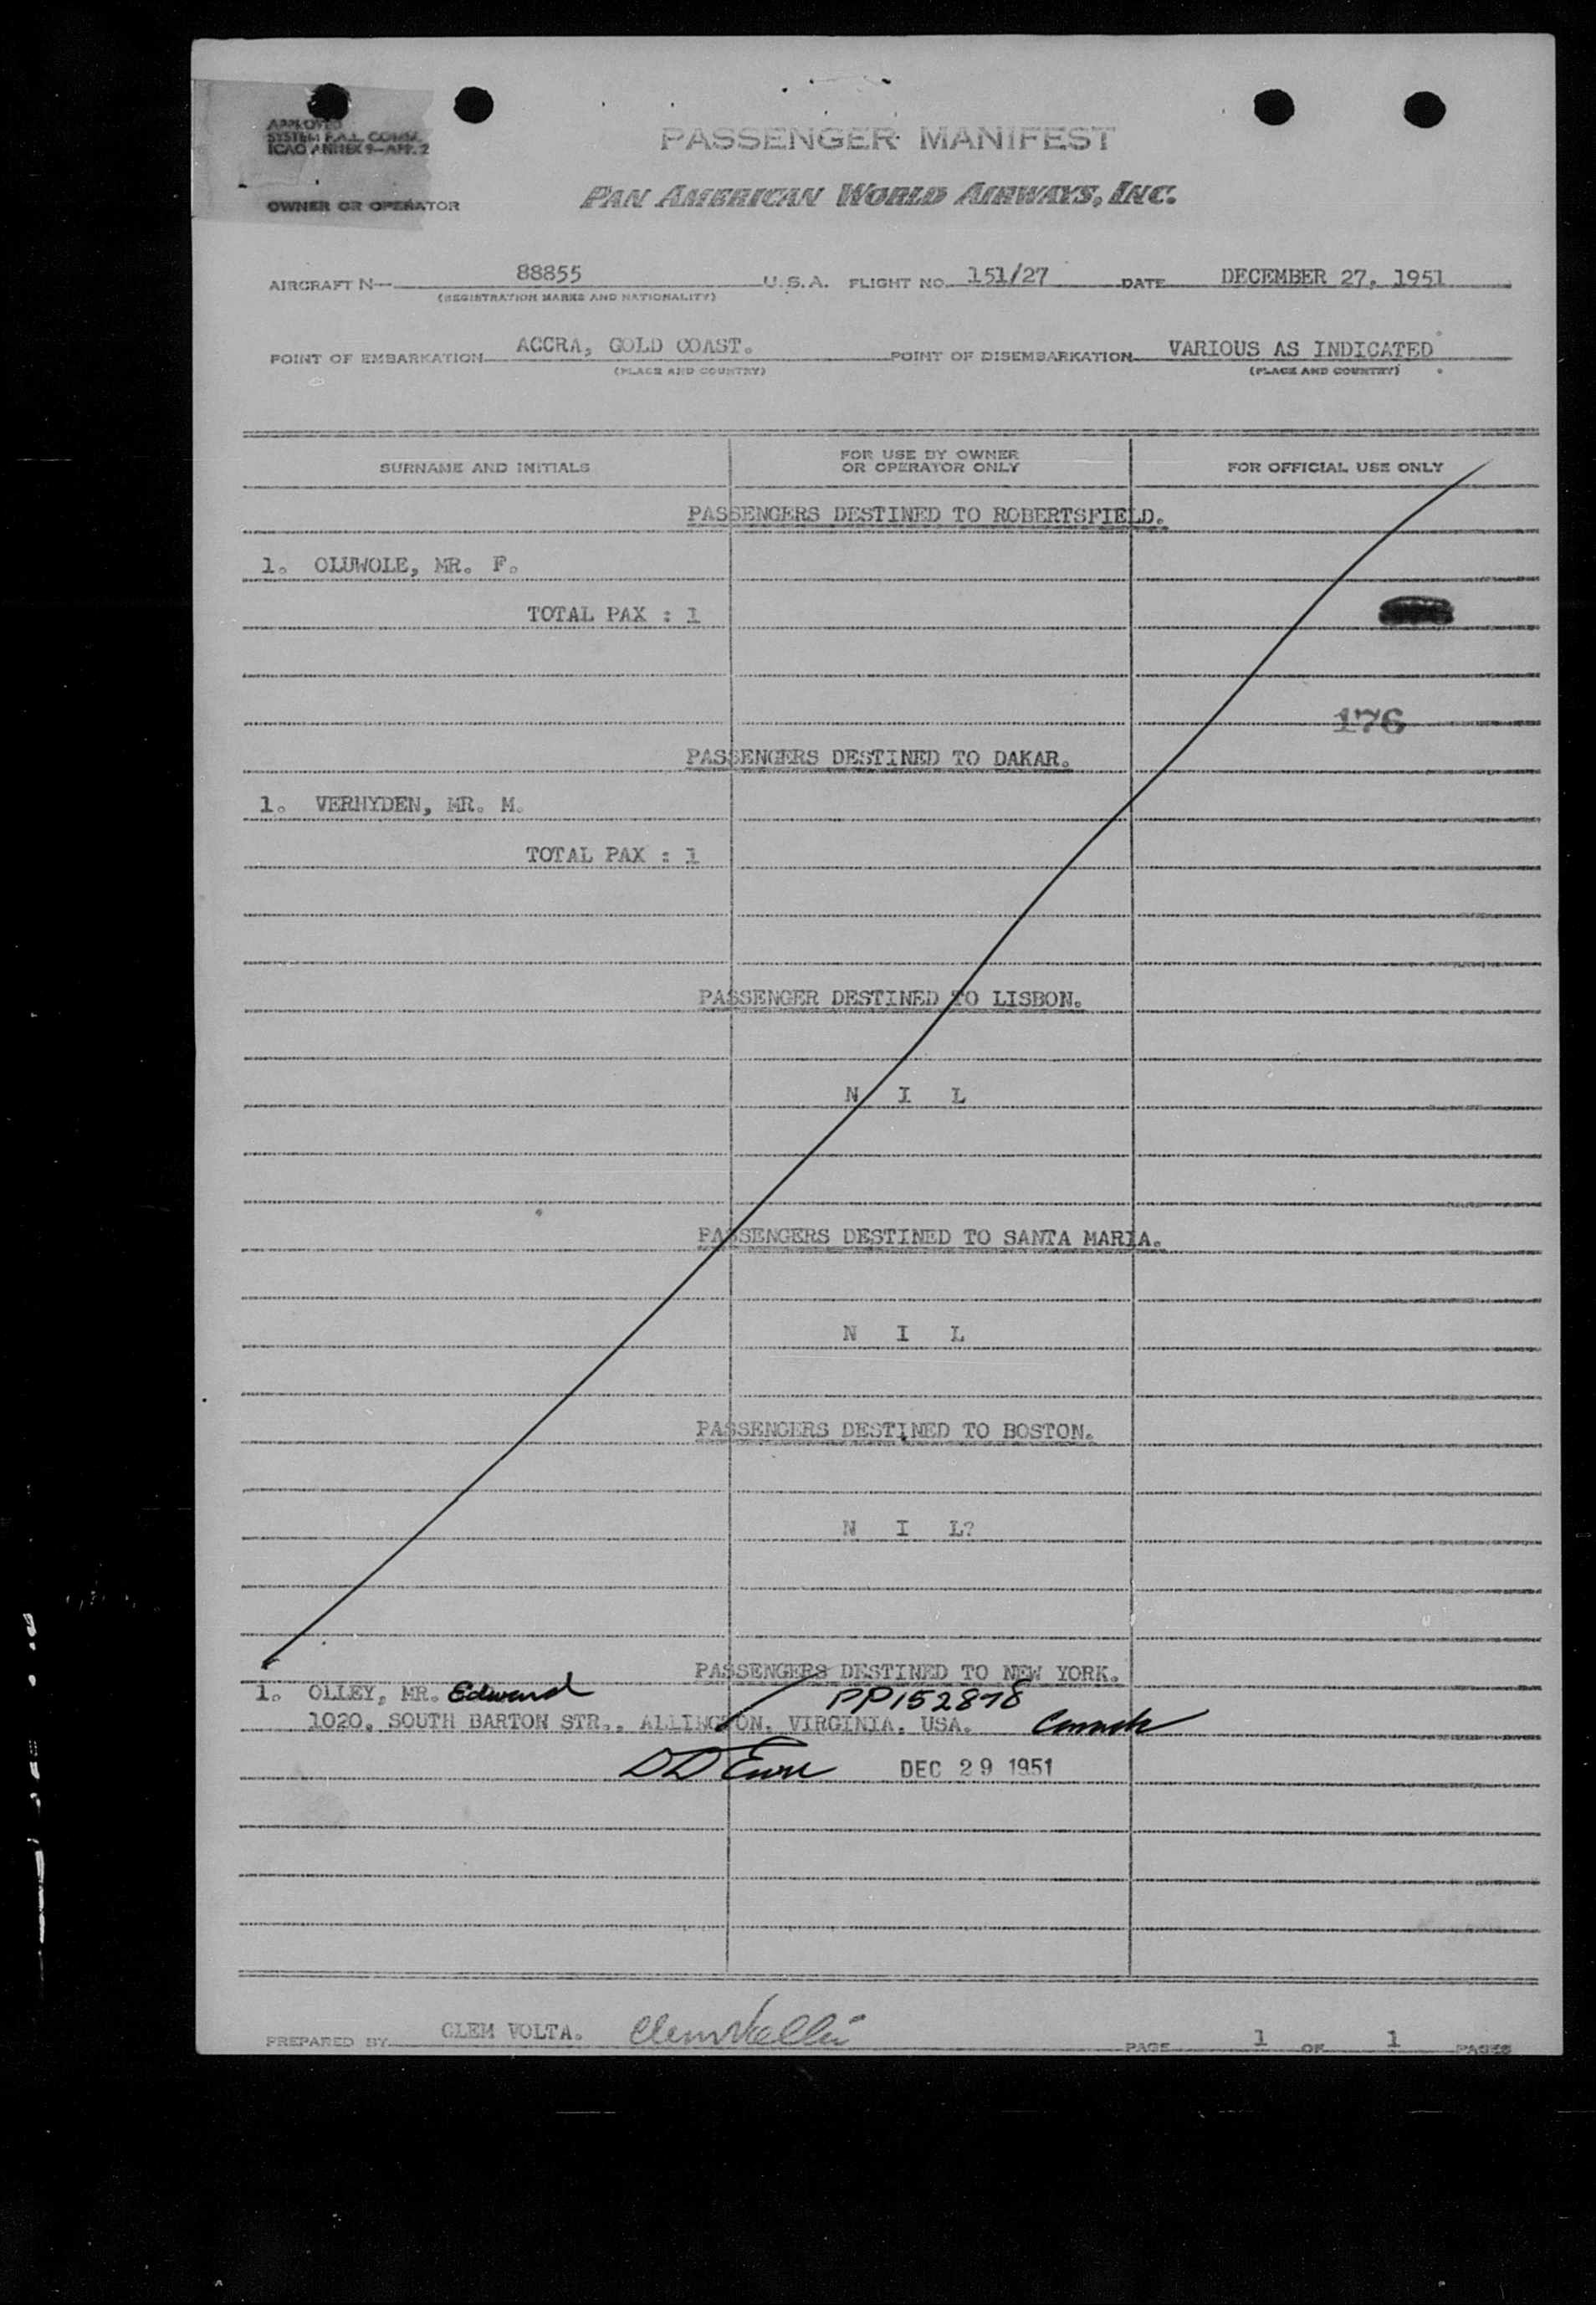 APPROVED
SYSTEM F.A.L. COMM.
ICAO ANNEX 9—APP. 2
PASSENGER MANIFEST
OWNER OR OPERATOR
PAN AMERICAN WORLD AIRWAYS, INC.
AIRCRAFT N— 88855 U.S.A. FLIGHT NO. 151/27 DATE DECEMBER 27, 1951
(REGISTRATION MARKS AND NATIONALITY)
POINT OF EMBARKATION ACCRA, GOLD COAST. POINT OF DISEMBARKATION VARIOUS AS INDICATED
(PLACE AND COUNTRY) (PLACE AND COUNTRY)
SURNAME AND INITIALS FOR USE BY OWNER OR OPERATOR ONLY FOR OFFICIAL USE ONLY
PASSENGERS DESTINED TO ROBERTSFIELD.
1. OLUWOLE, MR. F.
TOTAL PAX : 1
176
PASSENGERS DESTINED TO DAKAR.
1. VERHYDEN, MR. M.
TOTAL PAX : 1
PASSENGER DESTINED TO LISBON.
N I L
PASSENGERS DESTINED TO SANTA MARIA.
N I L
PASSENGERS DESTINED TO BOSTON.
N I L?
PASSENGERS DESTINED TO NEW YORK.
1. OLLEY, MR. Edward PP152878
1020, SOUTH BARTON STR., ALLINGTON, VIRGINIA, USA.
DEC 29 1951
PREPARED BY CLEM VOLTA. PAGE 1 OF 1 PAGES